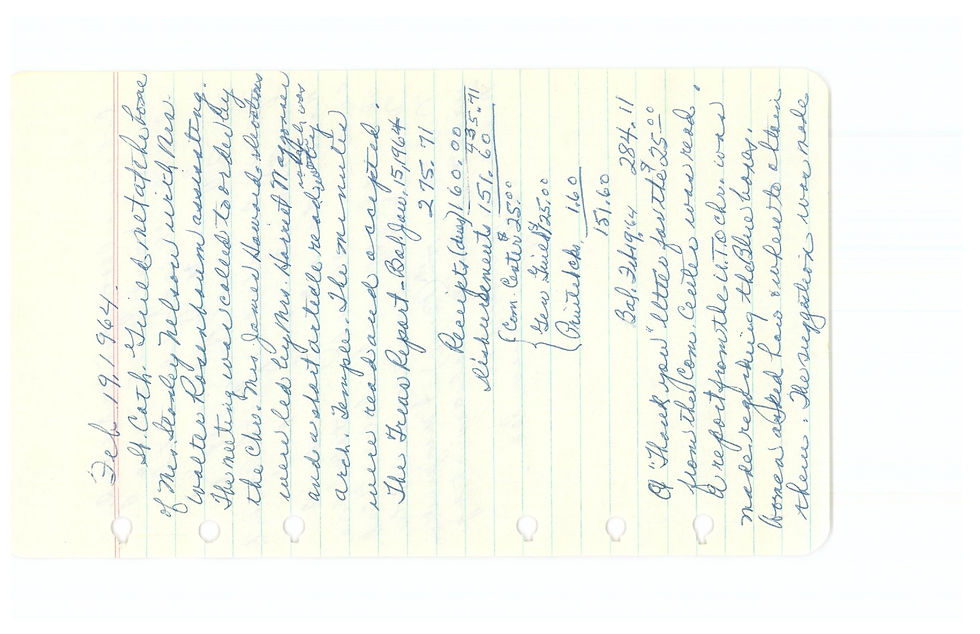 Feb. 19, 1964.
St. Cath. Guild met at the home
of Mrs. Stanley Nelson with Mrs.
Walter Rosenbaum assisting.
The meeting was called to order by
the Chr. Mrs. James Howard. devotions
were led by Mrs. Harriet Wagoner
and a short article read, which was
worthy
Arch. Temple. The minutes
were read and accepted.
The Treas Report - Bal. Jan. 15, 1964
275.71
Receipts (dues) 160.00
435.71
disbursements 151.60
Com. Center $25.00
Gen Guild $125.00
Phillitch. 1.60
151.60
Bal. 2-19-64 284.11
A "Thank you" letter for the $25.00
from the Com. Center was read.
A report from the U.T.O chr. was
made regarding the Blue boxes.
Some asked how & where to obtain
them. The suggestion was made